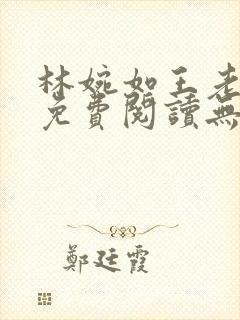 林婉如王老
免費閱讀無
鄭廷霞